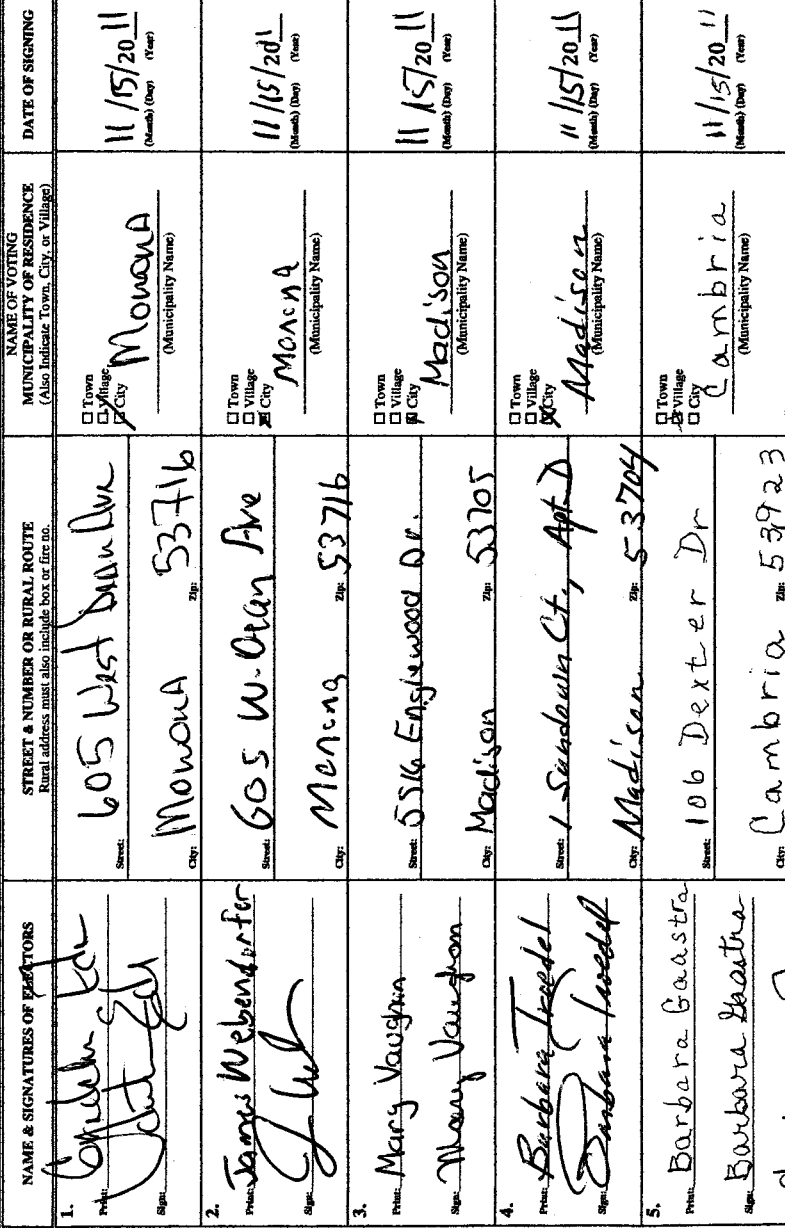 NAME & SIGNATURES OF ELECTORS
STREET & NUMBER OR RURAL ROUTE
Rural address must also include box or fire no.
NAME OF VOTING
MUNICIPALITY OF RESIDENCE
(Also Indicate Town, City, or Village)
DATE OF SIGNING
1.
Print:
Sign:
Street: 605 West Dean Ave
City: Monona Zip: 53716
Town
Village
City
Monona
(Municipality Name)
11/15/2011
(Month) (Day) (Year)
2.
Print: James Webendorfer
Sign:
Street: 605 W. Dean Ave
City: Monona Zip: 53716
Town
Village
City
Monona
(Municipality Name)
11/15/201
(Month) (Day) (Year)
3.
Print: Mary Vaughn
Sign: Mary Vaughn
Street: 5516 Englewood Dr.
City: Madison Zip: 53705
Town
Village
City
Madison
(Municipality Name)
11/15/2011
(Month) (Day) (Year)
4.
Print: Barbara Troedel
Sign: Barbara Troedel
Street: 1 Sundown Ct., Apt. D
City: Madison Zip: 53704
Town
Village
City
Madison
(Municipality Name)
11/15/2011
(Month) (Day) (Year)
5.
Print: Barbara Gaastra
Sign: Barbara Gaastra
Street: 106 Dexter Dr
City: Cambria Zip: 53923
Town
Village
City
Cambria
(Municipality Name)
11/15/2011
(Month) (Day) (Year)